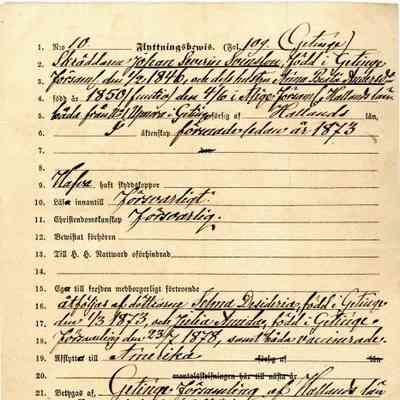 1. N:o 10. Flyttningsbewis. (Fol. 109. Getinge)
2. Skräddaren Johan Severin Svensson, född i Getinge
3. Församl. den 1846, och dess hustru Anna Beata
4. född år 1850 (femtio) den 4/6 i Församl. Hallands län
5. båda från Getinge förlig af Hallands län,
6. I äktenskap förenade sedan år 1873
7.
8.
9. Hafva haft skyddskoppor
10. Läser innantill försvarligt.
11. Christendomskunskap försvarlig.
12. Bewistat förhören
13. Till H. H. Nattward oförhindrad
14.
15. Eger till frejden medborgerligt förtroende
16. åtföljas af döttrarne Selma Desideria, född i Getinge
17. den 1/3 1873, och Julia Amanda, född i Getinge
18. Församling den 1878, samt båda vaccinerade.
19. Afflyttar till Amerika förlig af län
20. mantalsskrifningen här till nästa år
21. Betygas af Getinge Församling af Hallands län